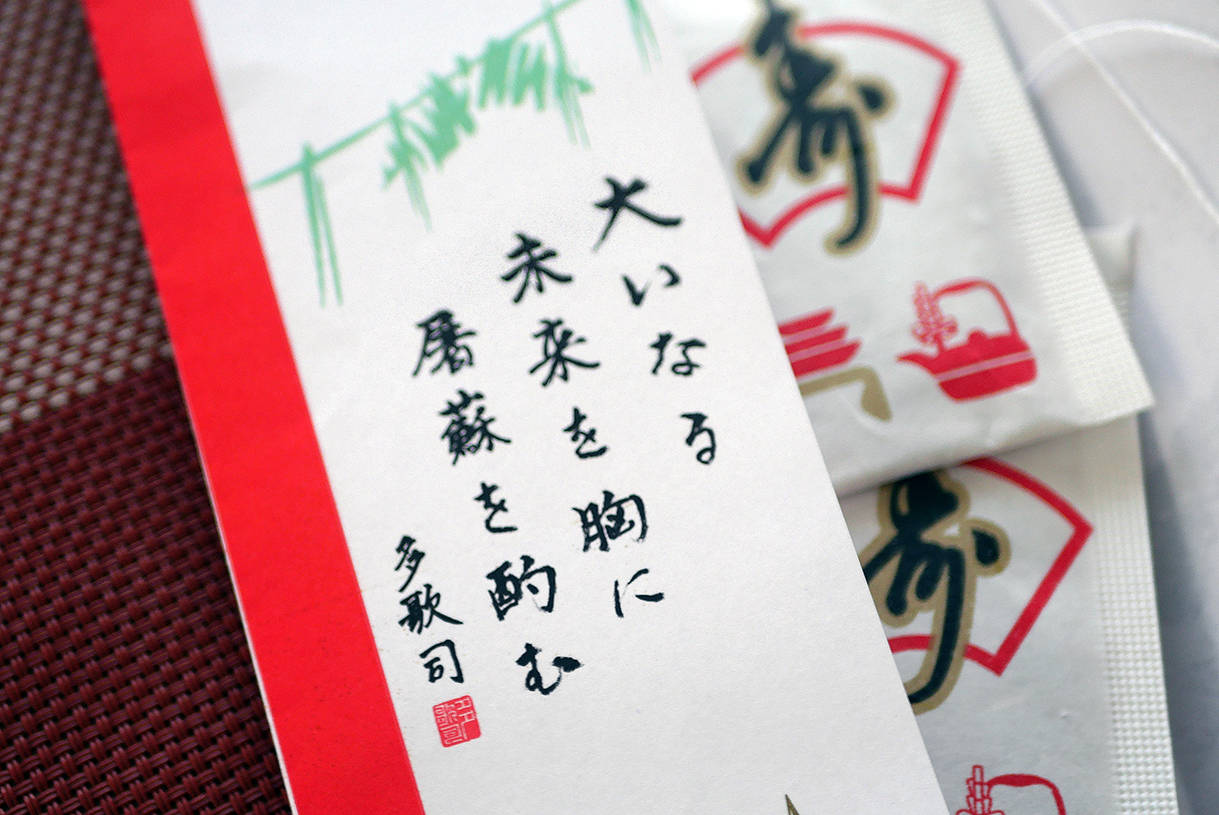 大いなる
未来を胸に
屠蘇を酌む
多歌司
寿
寿